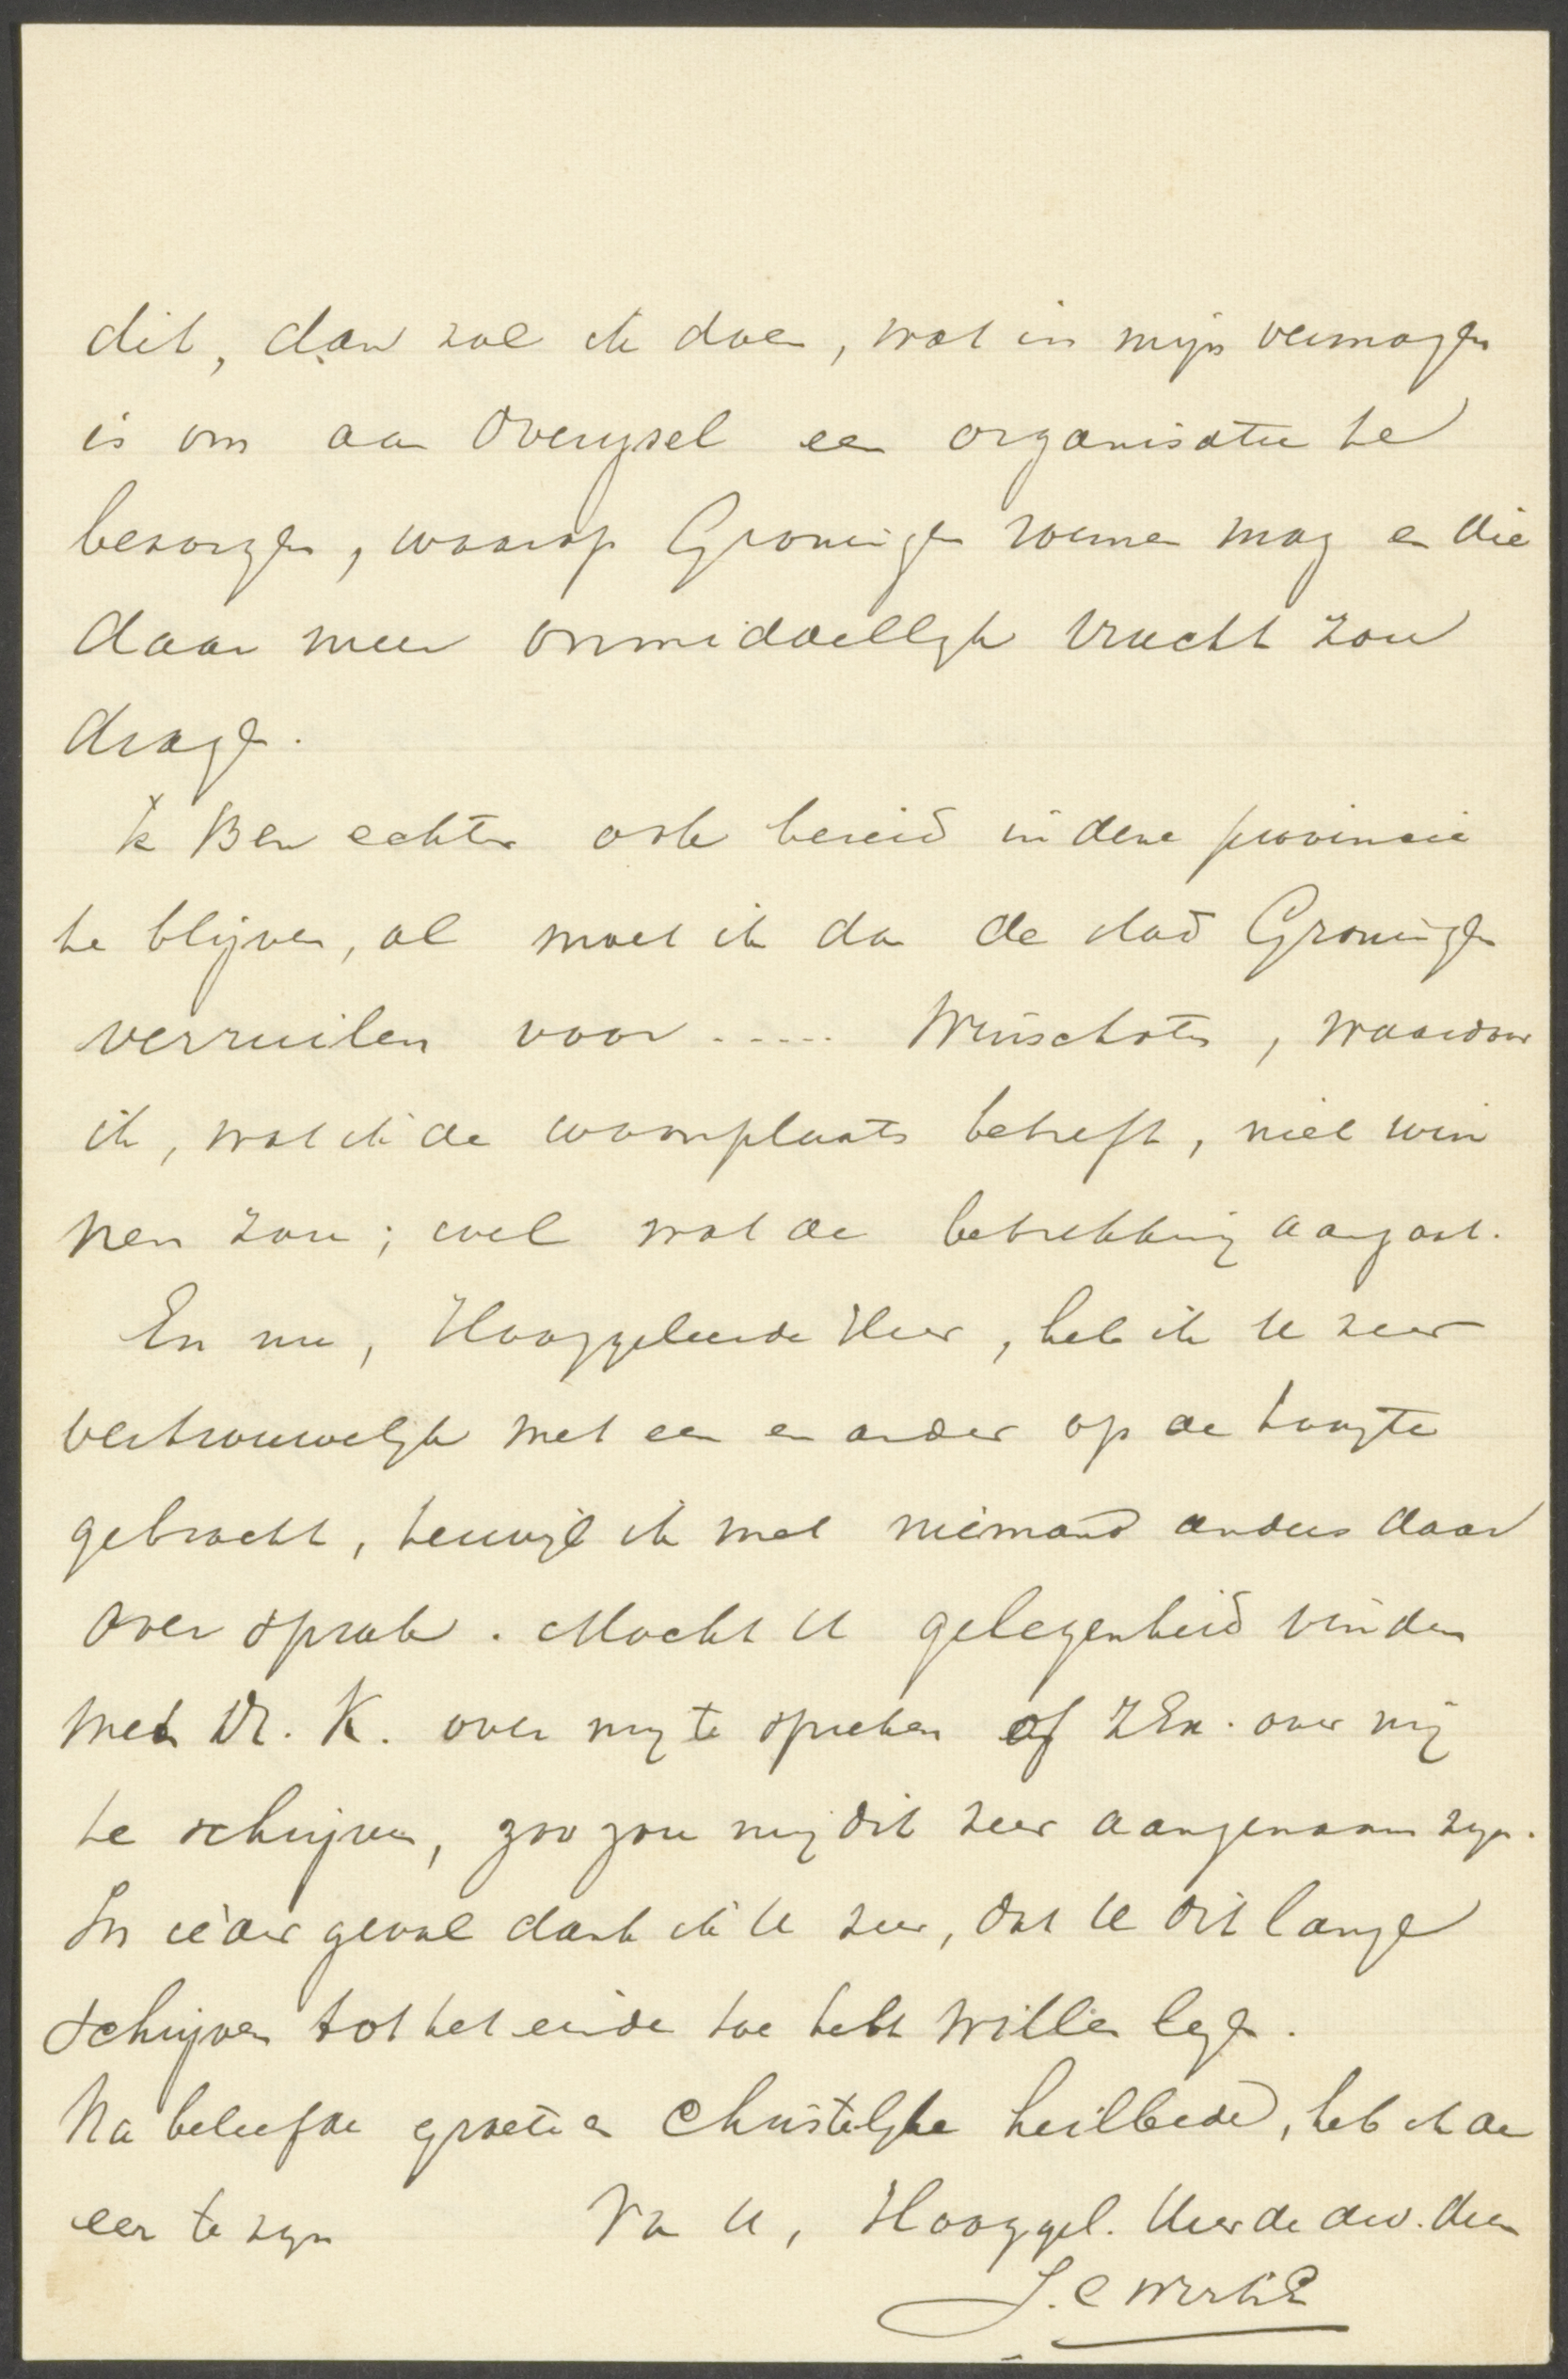 dit, dan zal ik doen, wat in mijn vermogen
is om aan Overijsel een organisatie te
bezorgen, waarop Groningen roemen mag en die
daar meer onmiddellijk vrucht zou
dragen.
Ik Ben echter ook bereid in deze provincie
te blijven, al moet ik dan de stad Groningen
verruilen voor ..... Winschoten, waardoor
ik, wat de woonplaats betreft, niet win
nen zou; wel wat de betrekking aangaat.
En nu, Hooggeleerde Heer, heb ik U zeer
vertrouwelijk met een en ander op de hoogte
gebracht, terwijl ik met niemand anders daar
over sprak. Mocht U gelegenheid vinden
met Dr. K. over mij te spreken of ZEx. over mij
te schrijven, zoo zou mij dit zeer aangenaam zijn.
In ieder geval dank ik U zeer, dat U dit lange
schrijven tot het einde toe hebt willen lezen.
Na beleefde groete en Christelijke heilbede, heb ik de
eer te zijn Van U, Hooggel. Heer de dw. dien
J. C